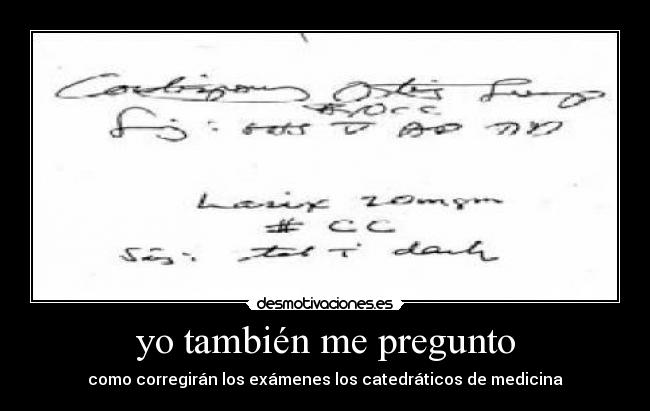 Cortisporin Otic Susp
Sig:
Lasix 20mgm
# CC
Sig: tab i daily
desmotivaciones.es
yo también me pregunto
como corregirán los exámenes los catedráticos de medicina